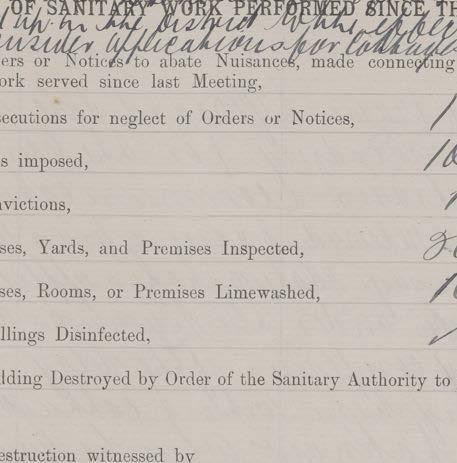 OF SANITARY WORK PERFORMED SINCE TH
up in the District to the
consider applications for Cottages
ers or Notices to abate Nuisances, made connecting
ork served since last Meeting,
secutions for neglect of Orders or Notices, 1
s imposed, 10
nvictions,
ses, Yards, and Premises Inspected,
ses, Rooms, or Premises Limewashed,
llings Disinfected,
lding Destroyed by Order of the Sanitary Authority to
estruction witnessed by